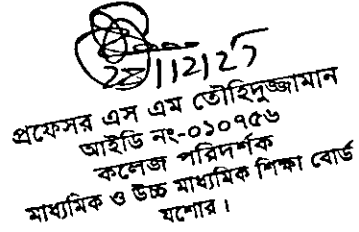 প্রফেসর এস এম তৌহিদুজ্জামান
আইডি নং-০১০৭৫৬
কলেজ পরিদর্শক
মাধ্যমিক ও উচ্চ মাধ্যমিক শিক্ষা বোর্ড
যশোর।